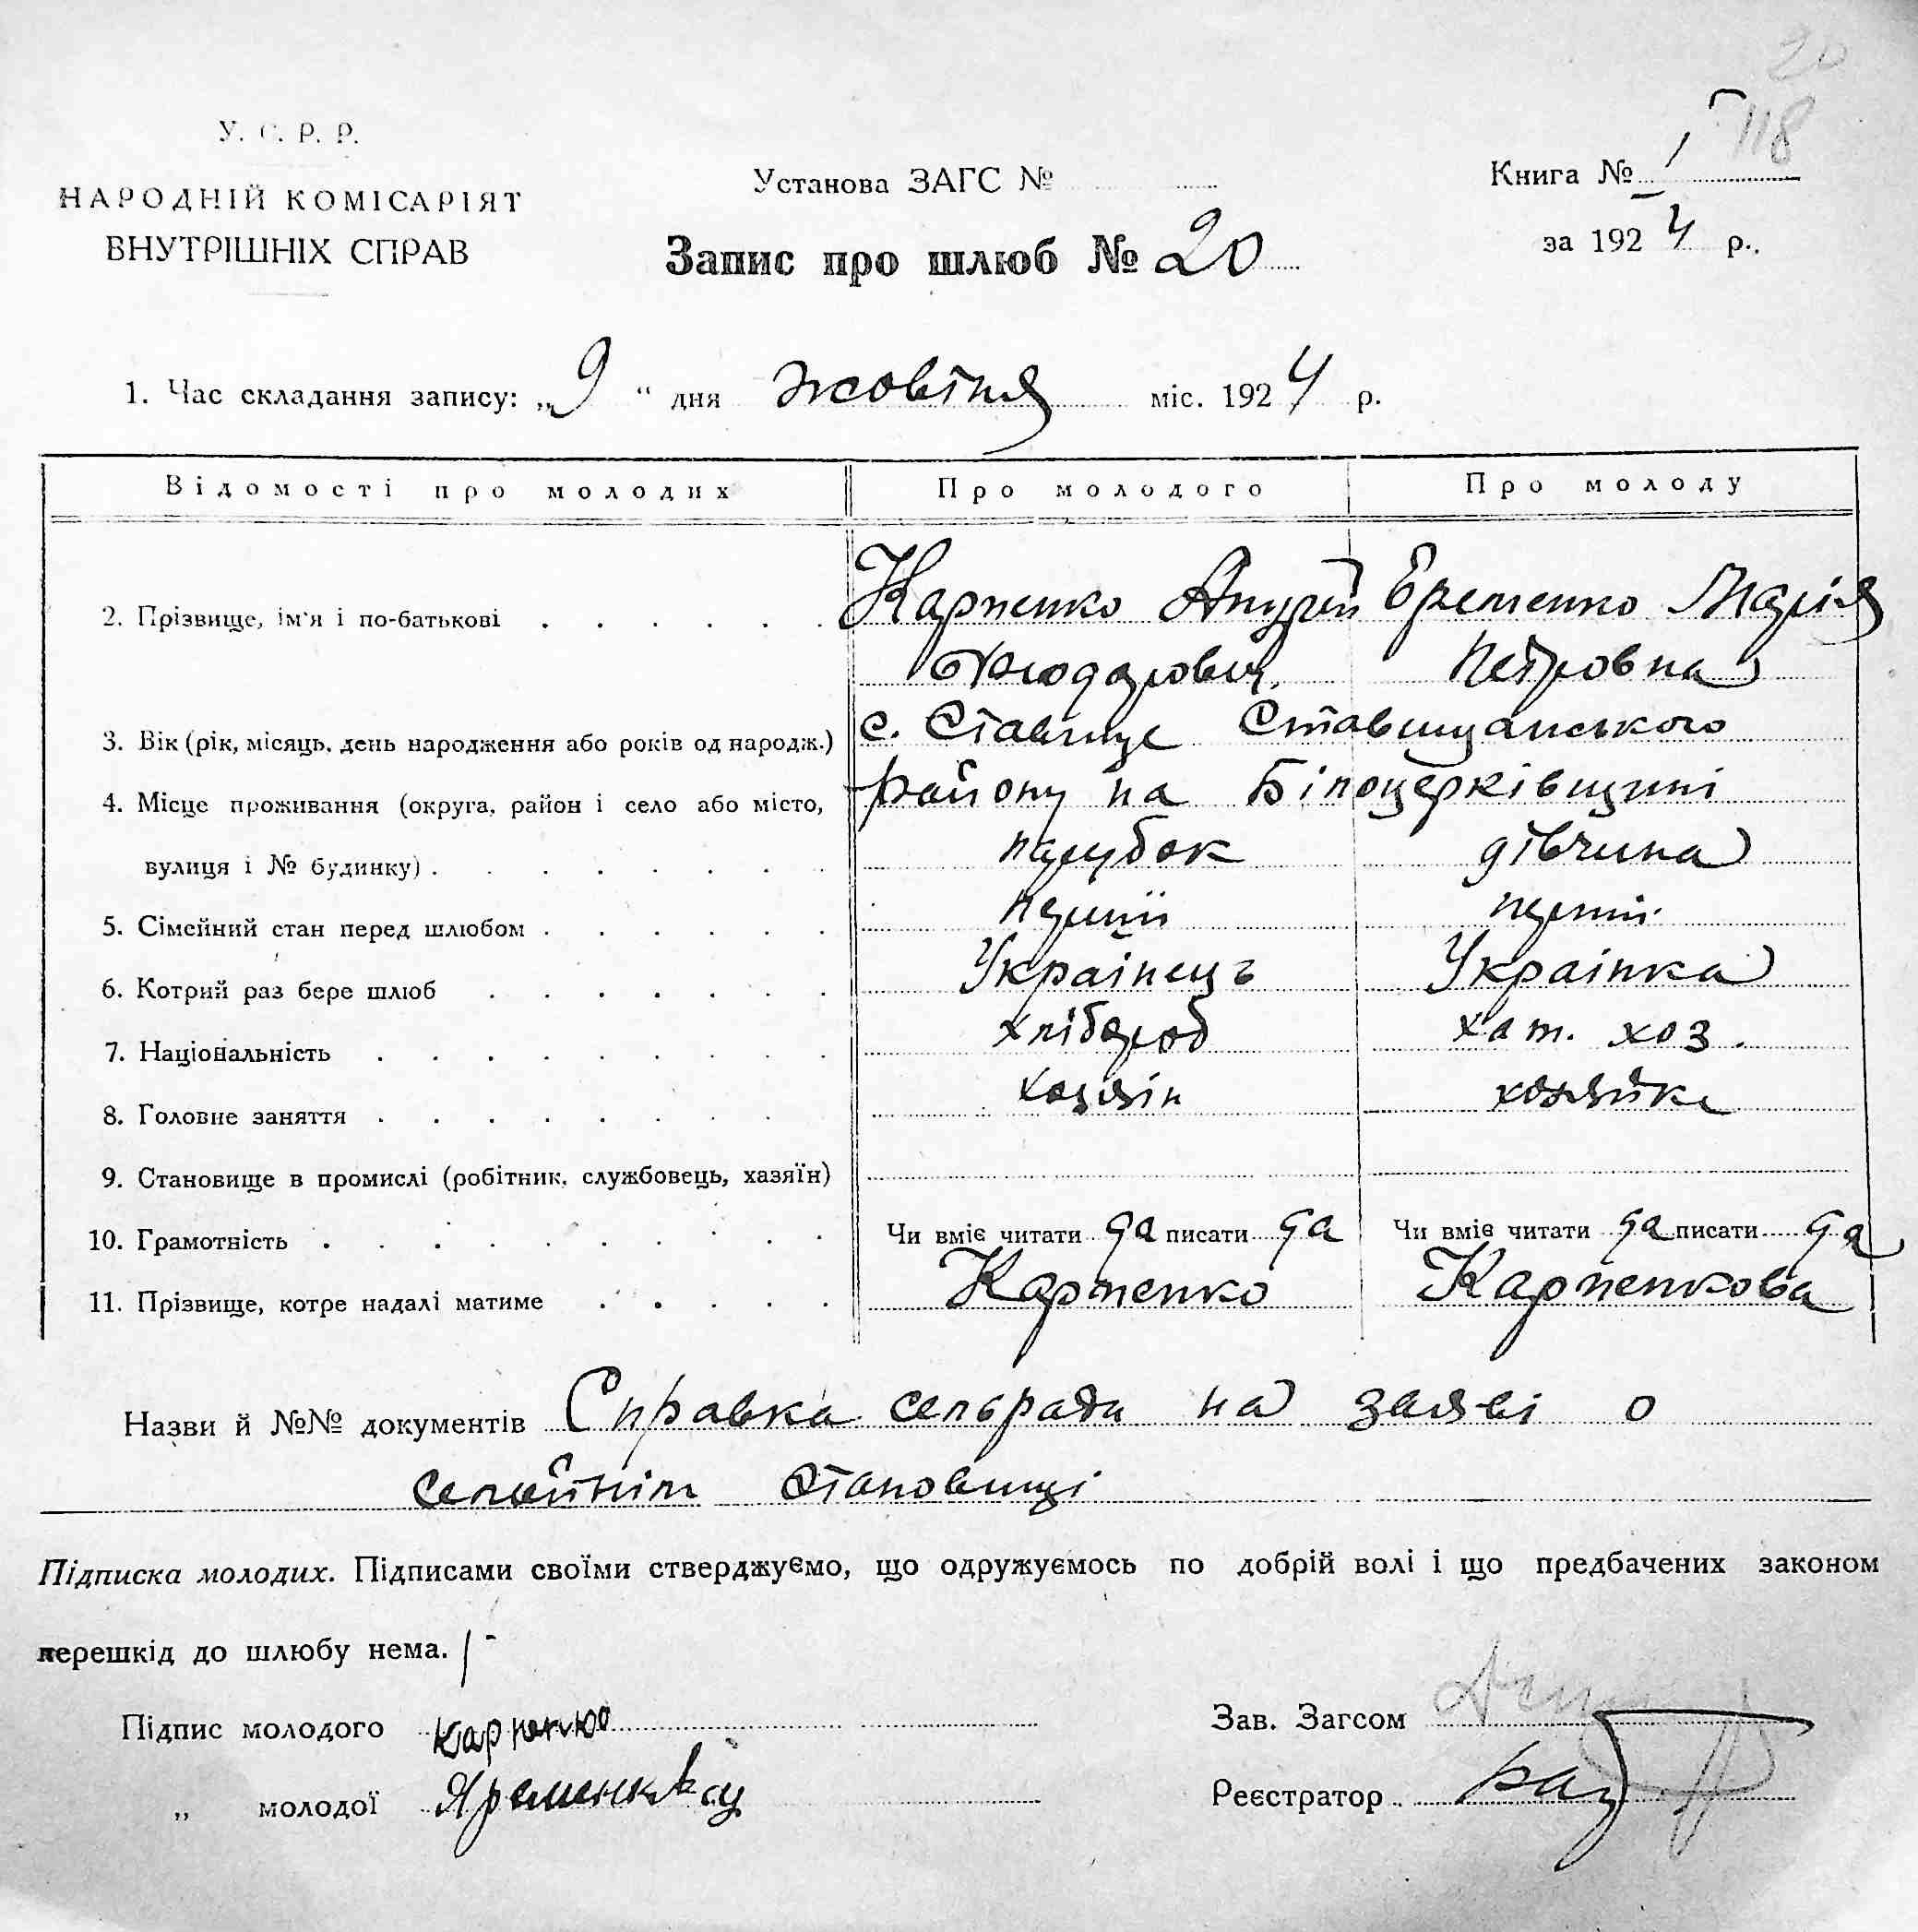 20
118
У. С. Р. Р.
НАРОДНІЙ КОМІСАРІЯТ
ВНУТРІШНІХ СПРАВ
Установа ЗАГС №
Запис про шлюб № 20
Книга № I
за 1924 р.
1. Час складання запису: „9“ дня жовтня міс. 1924 р.
Відомості про молодих Про молодого Про молоду
2. Прізвище, ім'я і по-батькові Карпенко Андрій Еременко Марія
Петровна
3. Вік (рік, місяць, день народження або років од народж.) с. Ставище Ставищанського
4. Місце проживання (округа, район і село або місто, району на Білоцерківщині
вулиця і № будинку) парубок дівчина
5. Сімейний стан перед шлюбом перший перший
6. Котрий раз бере шлюб Украінець Украінка
7. Національність хлібороб хат. хоз.
8. Головне заняття хазяін хозяйка
9. Становище в промислі (робітник, службовець, хазяїн)
10. Грамотність Чи вміє читати да писати да Чи вміє читати да писати да
11. Прізвище, котре надалі матиме Карпенко Карпенкова
Назви й №№ документів Справка сельради на заяві о
семейнім становищі
Підписка молодих. Підписами своїми стверджуємо, що одружуємось по добрій волі і що предбачених законом
перешкід до шлюбу нема.
Підпис молодого Зав. Загсом
„ молодої Реєстратор